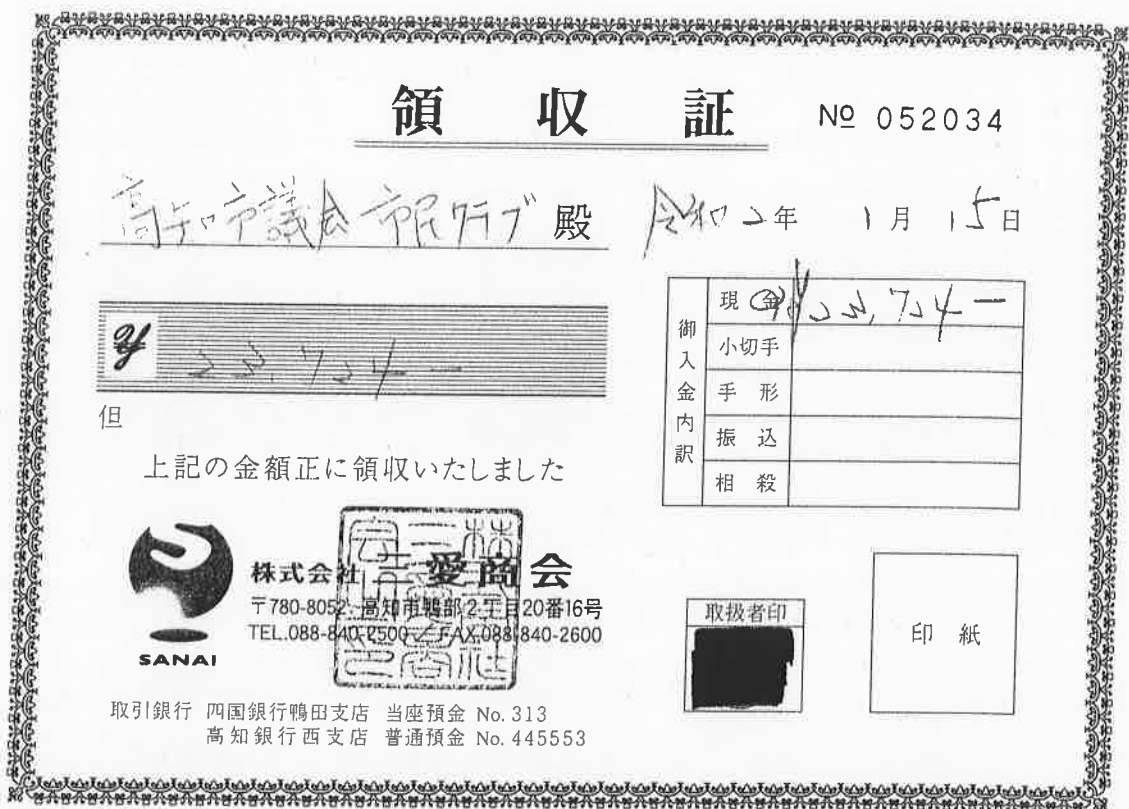 領収証 № 052034
高知市議会 市民クラブ 殿 令和2年 1月 15日
¥ 23,724-
但
御入金内訳
現金 ¥23,724-
小切手
手形
振込
相殺
上記の金額正に領収いたしました
株式会社三愛商会
〒780-8052 高知市鴨部2丁目20番16号
TEL.088-840-2500 / FAX.088-840-2600
SANAI
取扱者印
印紙
取引銀行 四国銀行鴨田支店 当座預金 No.313
高知銀行西支店 普通預金 No.445553